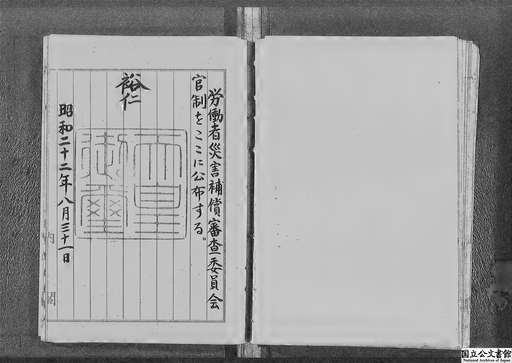 労働者災害補償審査委員会
官制をここに公布する。
裕仁
天皇
御璽
昭和二十二年八月三十一日
内閣
国立公文書館
National Archives of Japan